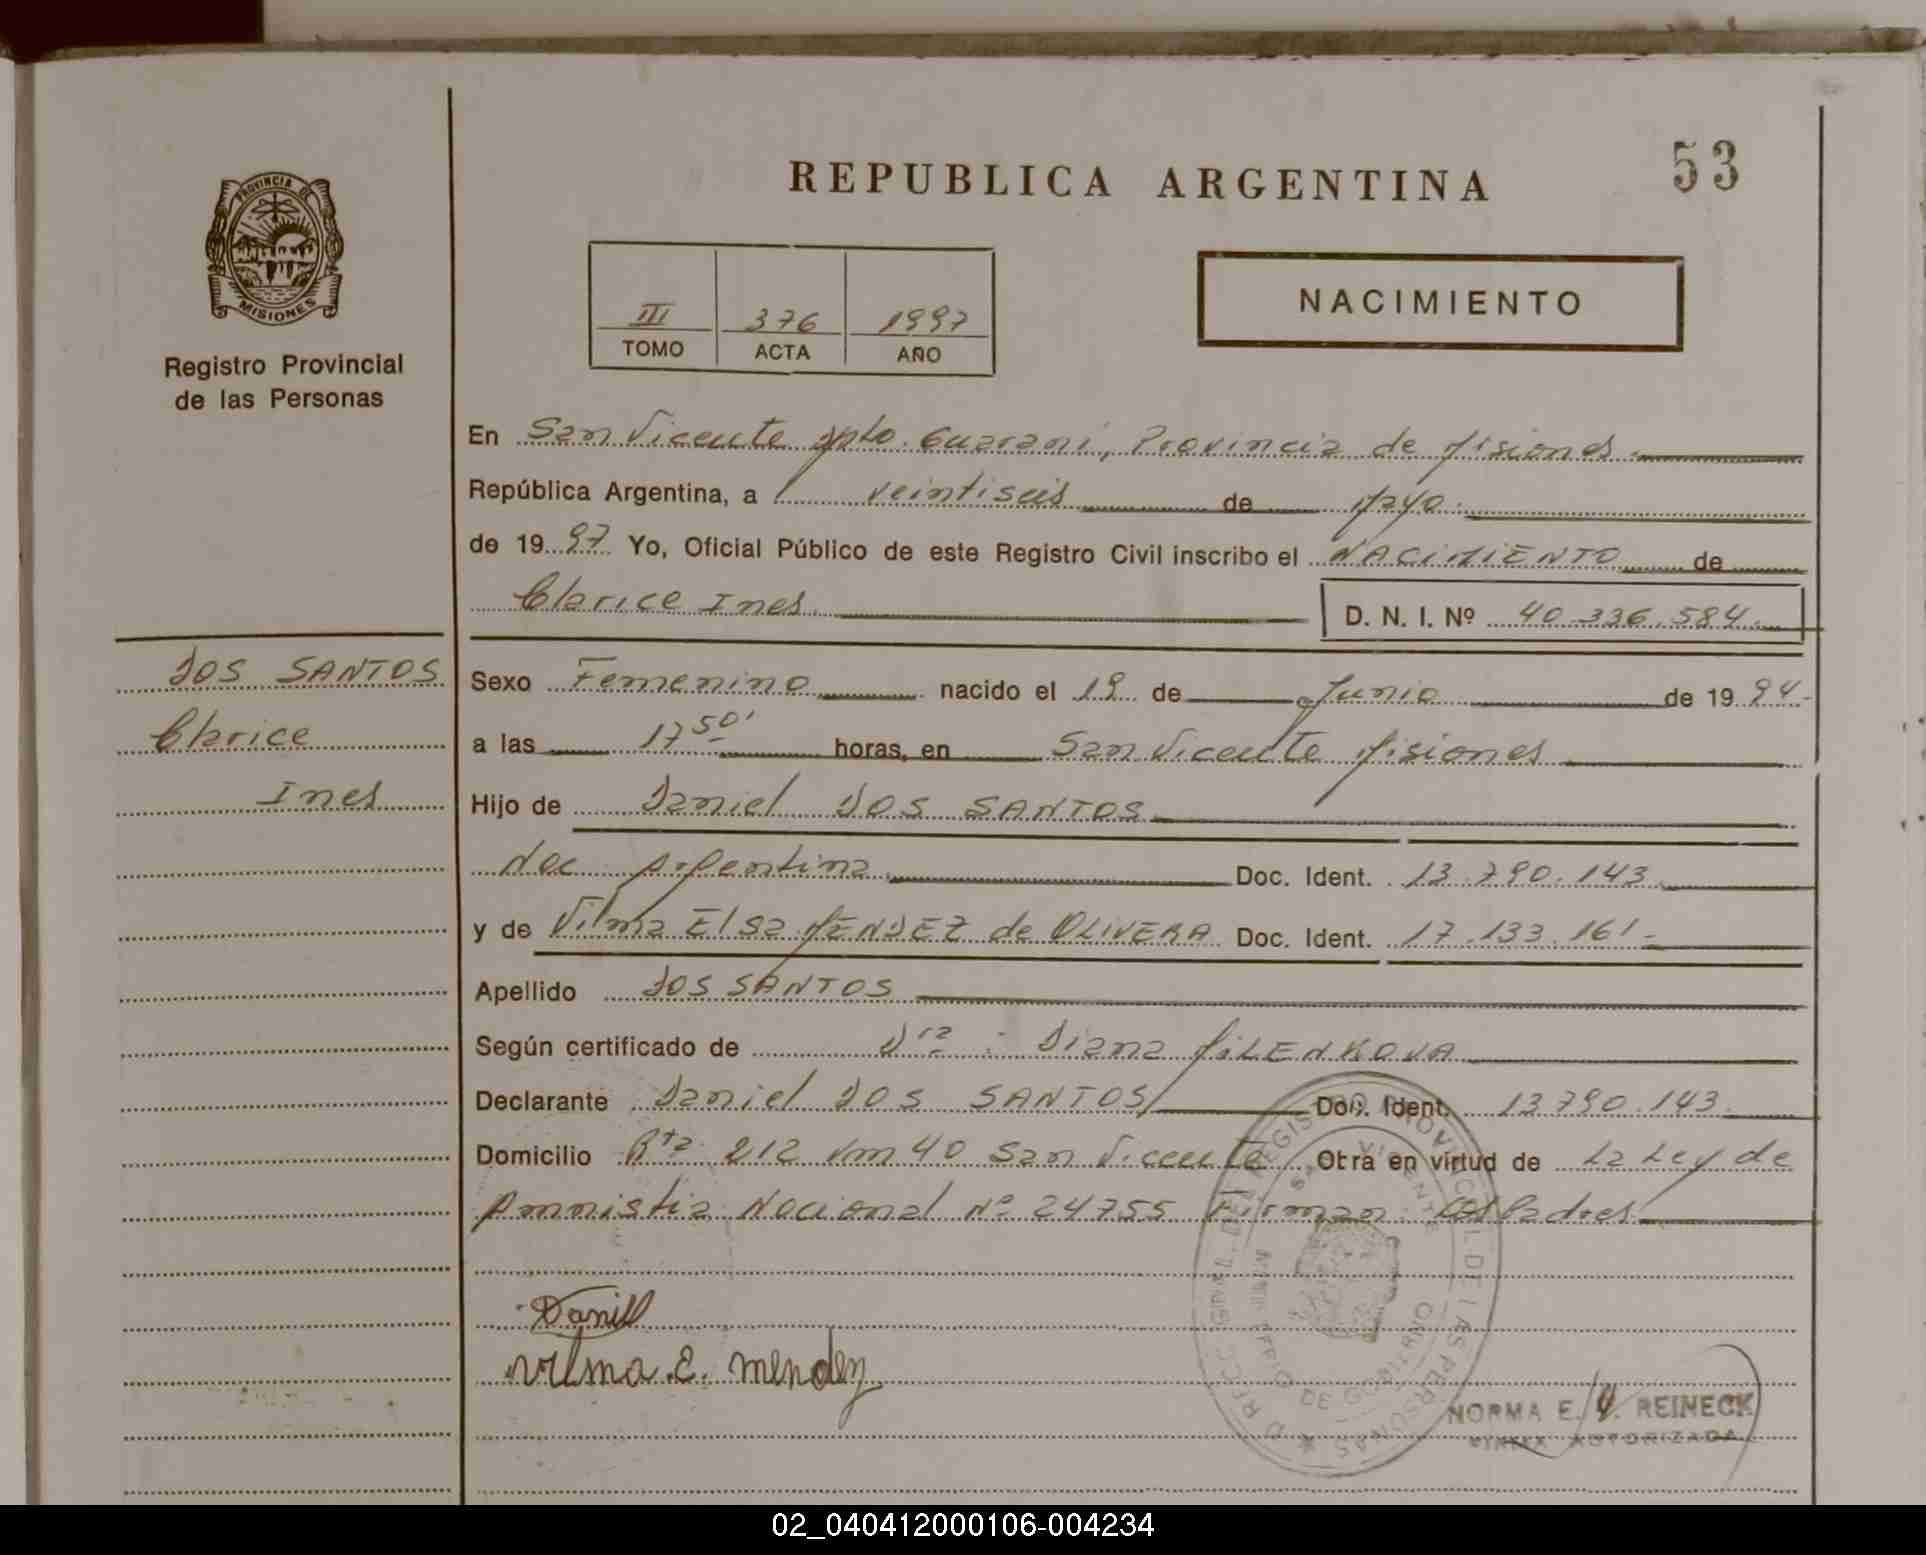 53
REPUBLICA ARGENTINA
PROVINCIA DE
MISIONES
Registro Provincial
de las Personas
III 376 1997
TOMO ACTA AÑO
NACIMIENTO
En San Vicente Dpto. Guaraní, Provincia de Misiones.
República Argentina, a veintiseis de Mayo.
de 1997 Yo, Oficial Público de este Registro Civil inscribo el NACIMIENTO de
Clarice Ines.
D. N. I. Nº 40.336.584.
DOS SANTOS
Clarice
Ines
Sexo Femenino nacido el 19 de Junio de 1994-
a las 17 50' horas, en San Vicente Misiones
Hijo de Daniel DOS SANTOS
Nac Argentina. Doc. Ident. 13.790.143.
y de Vilma Elsa MENDEZ de OLIVERA Doc. Ident. 17.133.161-
Apellido DOS SANTOS
Según certificado de Dra: Diana MILENKOVA
Declarante Daniel DOS SANTOS Doc. Ident. 13790.143.
Domicilio Rta 212 Km 40 San Vicente Otra en virtud de La Ley de
Amnistia Nacional Nº 24755 Firman: Los Padres
Vilma.E. Mendez
NORMA E. REINECK
FIRMA AUTORIZADA
02_040412000106-004234